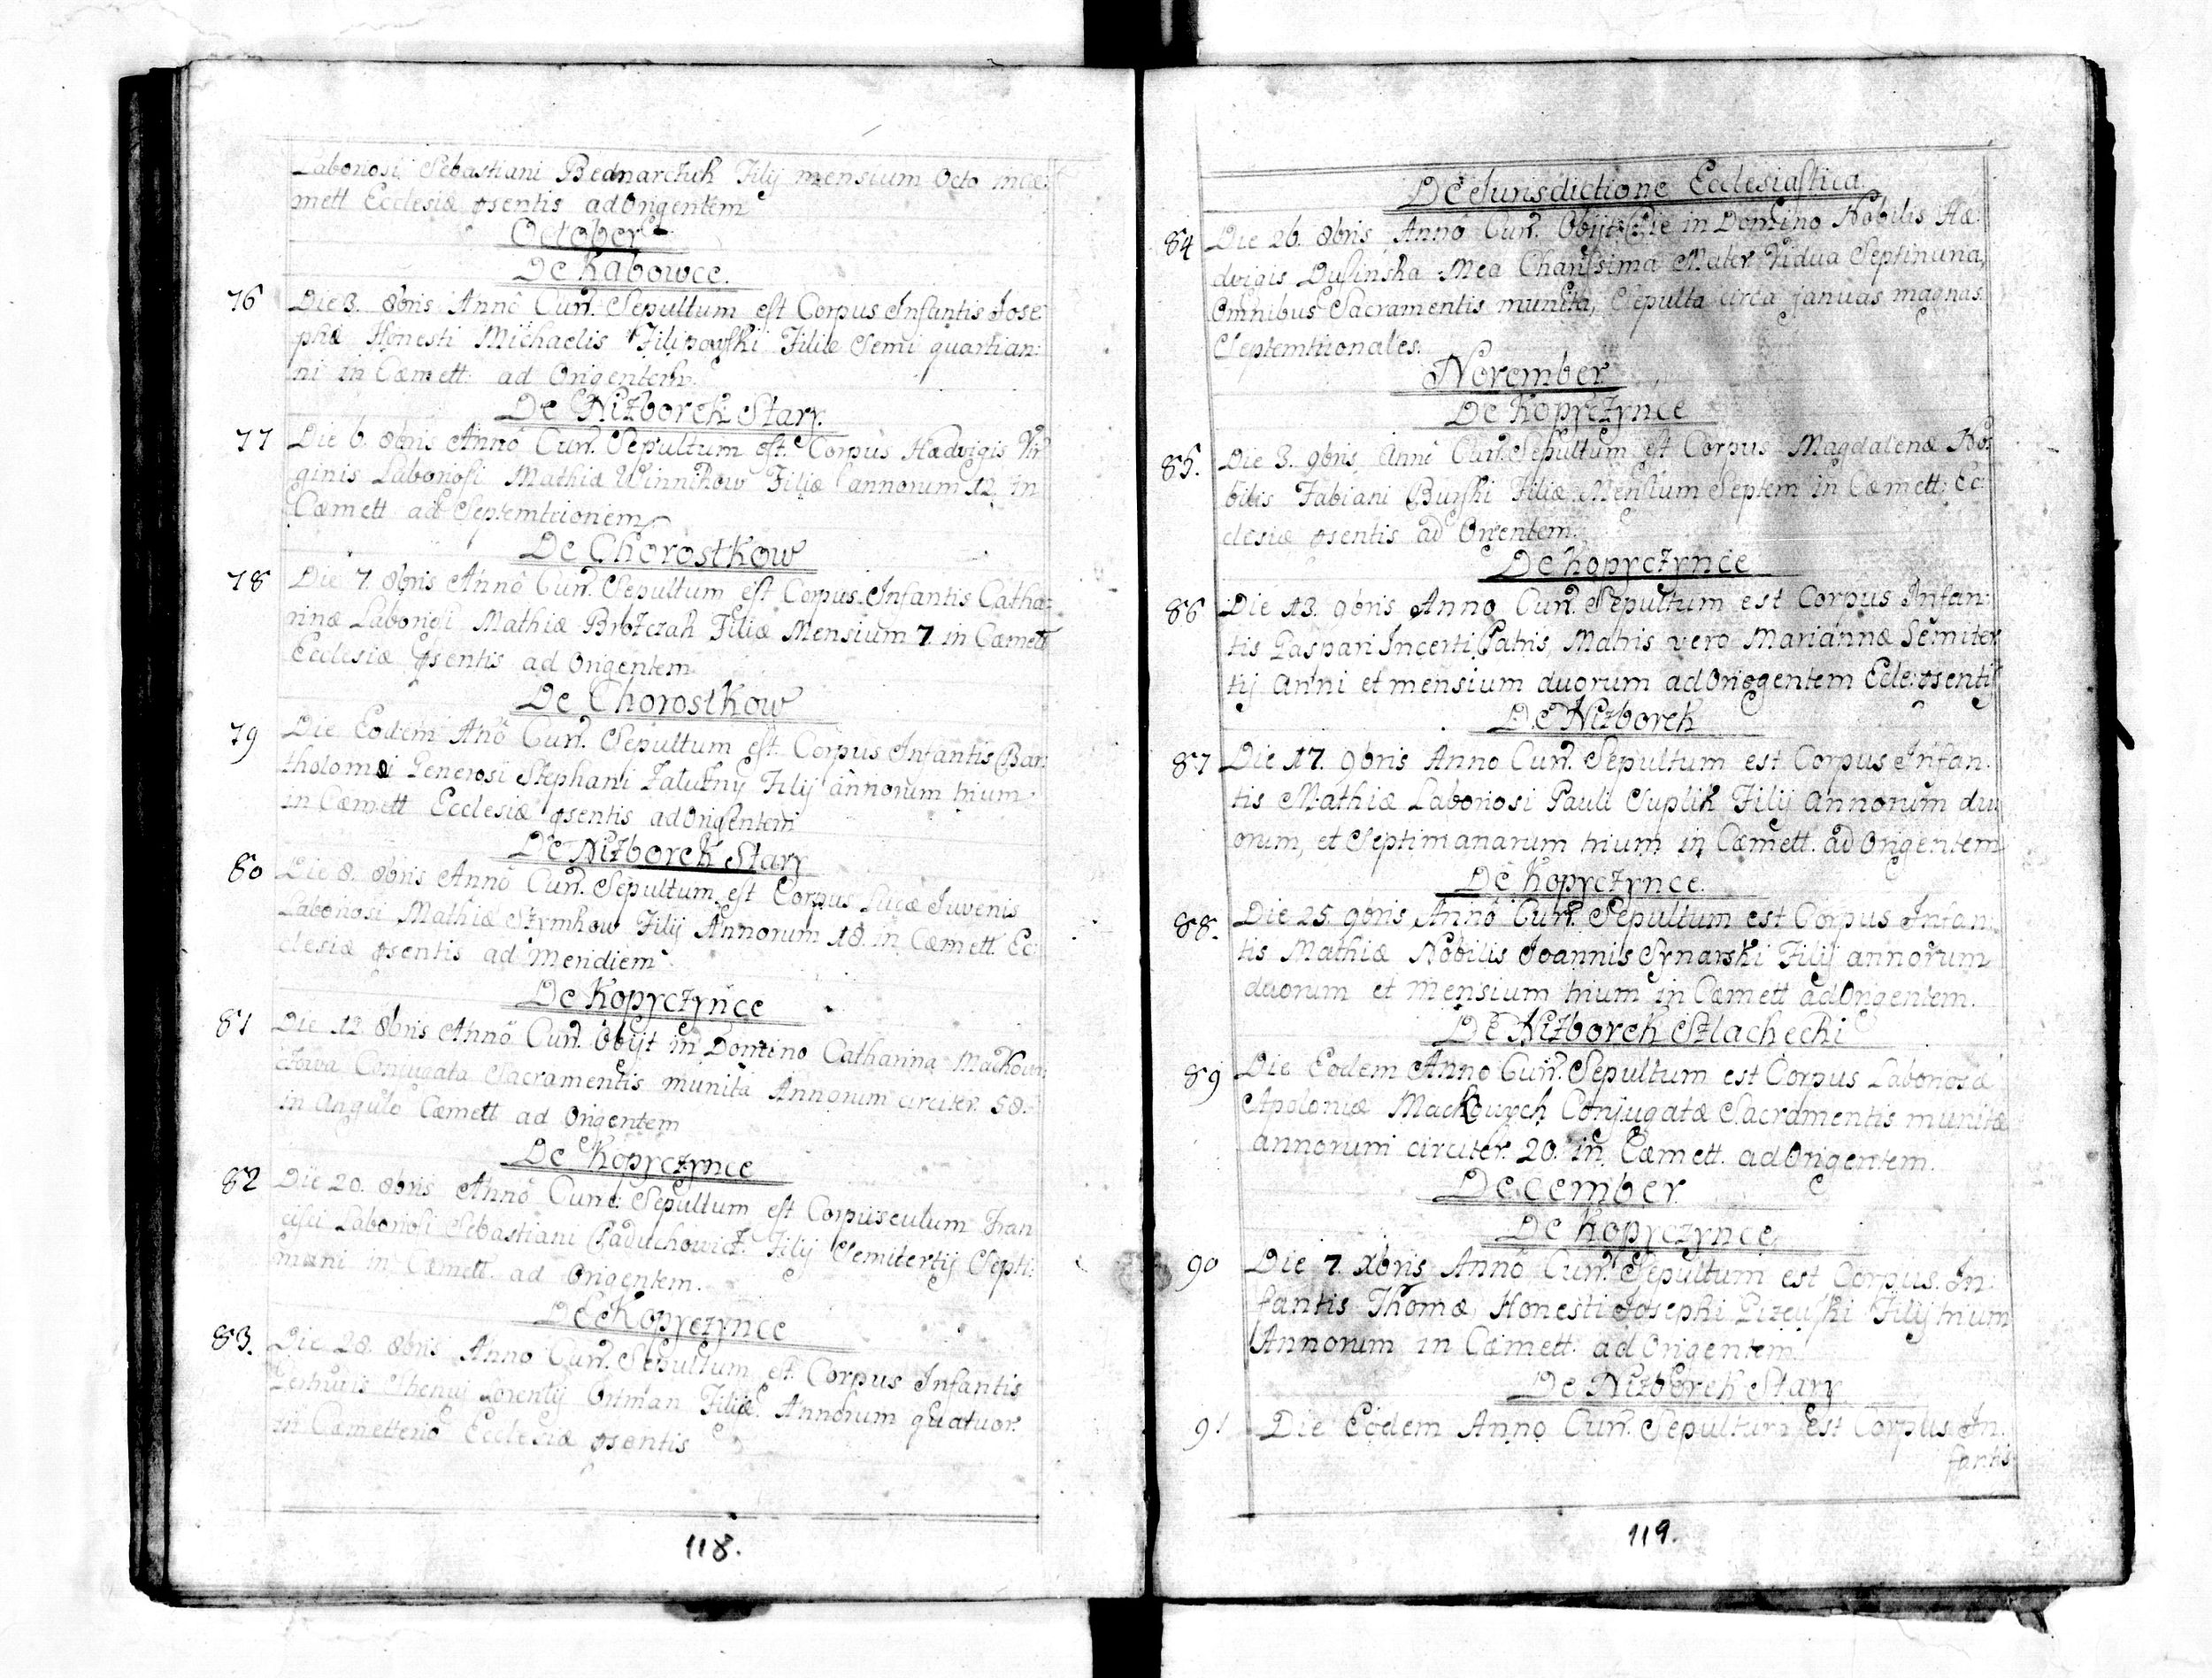 Laboriosi Sebastiani Bednarchuk Filij mensium Octo in Cæ:
mett Ecclesiæ psentis ad Origentem
October
De Kabowce.
76 Die 3. 8bris Annô Curr. Sepultum est Corpus Infantis Jose
phæ Honesti Michaelis Filipowski Filiæ Semi quartian:
ni in Cæmett: ad Origentem.
De Niżborek Stary.
77 Die 6. 8bris Annô Curr. Sepultum est. Corpus Hædvigis Vir
ginis Laboriosi Mathiæ Winnikow Filiæ annorum 12 in
Cæmett ad Septemtrionem
De Chorostkow
78 Die 7. 8bris Annô Curr. Sepultum est Corpus Infantis Catha:
rinæ Laboriosi Mathiæ Brożczak Filiæ Mensium 7 in Cæmett
Ecclesiæ psentis ad Origentem
De Chorostkow
79 Die Eodem Anô Curr. Sepultum est. Corpus Infantis Bar:
tholomæi Generosi Stephani Załużny Filij annorum trium
in Cæmett Ecclesiæ psentis ad Origentem
De Niżborek Stary
80 Die 8. 8bris Annô Curr. Sepultum est Corpus Lucæ Juvenis
Laboriosi Mathiæ Szymkow Filij Annorum 18. in Cæmett Ec:
clesiæ psentis ad Meridiem
De Kopyczynce
81 Die 12. 8bris Annô Curr. Obijt in Domino Catharina Mackowi:
czowa Conjugata Sacramentis munita Annorum circiter 58.
in Angulo Cæmett ad Origentem
De Kopyczynce
82 Die 20. 8bris Annô Curr: Sepultum est Corpusculum Fran
cisci Laboriosi Sebastiani Paduchowicz. Filij Semitertij Septi:
mani in Cæmett. ad Origentem.
De Kopyczynce
83. Die 28. 8bris Anno Curr. Sepultum est. Corpus Infantis
Lorentij Ortman Filiæ Annorum quatuor
in Cæmetterio Ecclesiæ psentis
118.
De Jurisdictione Ecclesiastica
84 Die 26. 8bris Annô Curr. Obijt Pie in Domino Nobilis Hæ:
dvigis Dulinska Mea Charissima Mater Vidua Septinuna,
Omnibus Sacramentis munita, Sepulta circa januas magnas
Septemtrionales.
November
De Kopyczynce
85. Die 3. 9bris Anni Curr. Sepultum est Corpus Magdalenæ No:
bilis Fabiani Burski Filiæ Mensium Septem in Cæmett: Ec:
clesiæ psentis ad Orientem.
De Kopyczynce
86 Die 13. 9bris Anno Curr. Sepultum est Corpus Infan:
tis Gaspari Incerti Patris, Matris vero Mariannæ Semiter
tij Anni et mensium duorum ad Origentem Ecle: psentis
De Niżborek
87 Die 17. 9bris Anno Curr. Sepultum est Corpus Infan.
tis Mathiæ Laboriosi Pauli Suplik Filij Annorum du
orum, et Septimanarum trium in Cæmett. ad Origentem
De Kopyczynce.
88. Die 25. 9bris Annô Curr. Sepultum est Corpus Infan.
tis Mathiæ Nobilis Joannis Synarski Filij annorum
duorum et Mensium trium in Cæmett ad Origentem.
De Niżborek Szlachecki
89 Die Eodem Anno Curr. Sepultum est Corpus Laboriosæ
Apoloniæ Mackowych Conjugatæ Sacramentis munitæ
annorum circiter 20. in Cæmett. ad Origentem.
December
De Kopyczynce.
90 Die 7. Xbris Annô Curr. Sepultum est Corpus. In:
fantis Thomæ Honesti Josephi Gizewski Filij trium
Annorum in Cæmett. ad Origentem.
De Niżborek Stary
91 Die Eodem Anno Curr. Sepultum est Corpus In.
fantis
119.